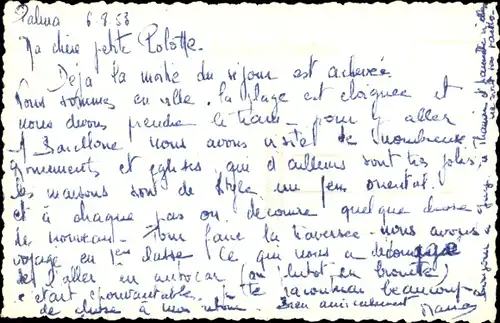 Palma 6.8.53
Ma chère petite Lolotte.
Déjà la moitié du séjour est achevée
Nous sommes en ville, la plage est éloignée et
nous devons prendre le tram pour y aller
A Barcelone nous avons visité de nombreux
monuments et églises, qui d'ailleurs sont très jolies.
les maisons sont de style un peu oriental.
et à chaque pas on découvre quelque chose
de nouveau. Pour faire la traversée nous avons
voyagé en 1ère classe ce qui nous a
d'aller en autocar (ou plutôt en brouette)
c'était épouvantable. je te raconterai beaucoup
de choses à mon retour. Bien amicalement